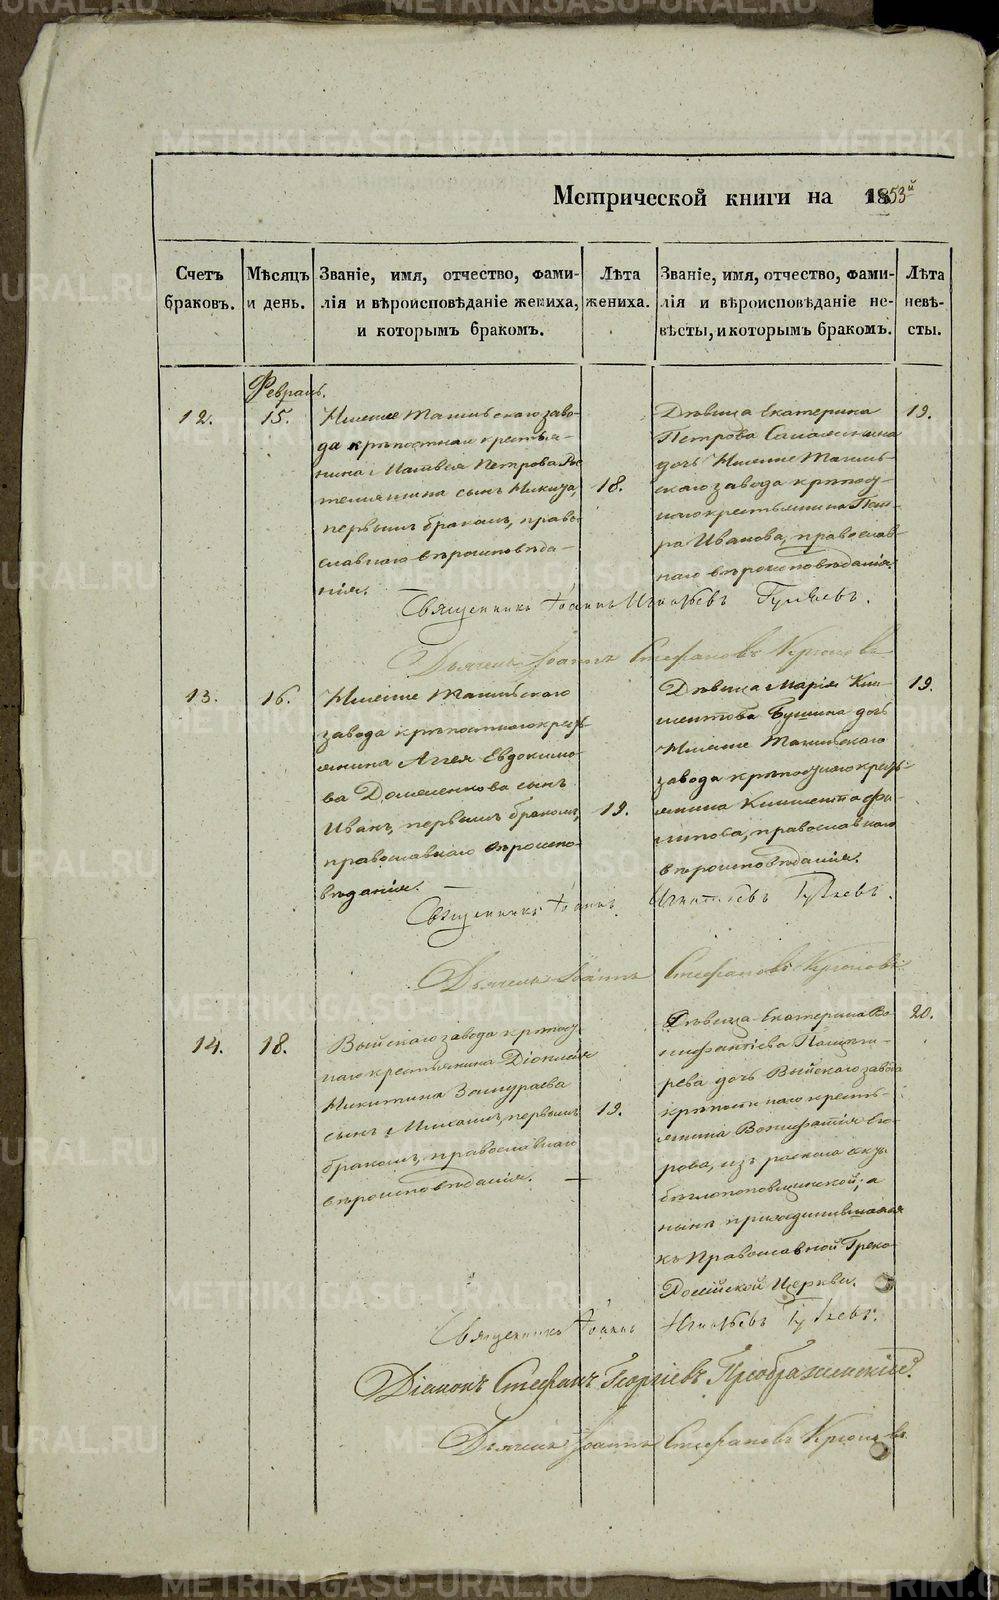 Метрической книги на 1853й
Счетъ браковъ.
Мѣсяцъ и день.
Званіе, имя, отчество, фами-
лія и вѣроисповѣданіе жениха,
и которымъ бракомъ.
Лѣта
жениха.
Званіе, имя, отчество, фами-
лія и вѣроисповѣданіе не-
вѣсты, и которымъ бракомъ.
Лѣта
невѣ-
сты.
Февраль.
12.
15.
Нижне Тагильскаго заво-
да крѣпостнаго крестья-
нина Матвея Петрова
сынъ Никита,
первымъ бракомъ, право-
славнаго вѣроисповѣда-
нія.
18.
Дѣвица Екатерина
Петрова
дочь Нижне Тагиль-
скаго завода крѣпост-
наго крестьянина Пет-
ра Иванова, православ-
наго вѣроисповѣданія.
19.
Священникъ Іоаннъ Игнатьевъ Гуляевъ.
Дьячекъ Іоаннъ Стефановъ Крюковъ
13.
16.
Нижне Тагильскаго
завода крѣпостнаго крест-
янина Аггея Евдокимо-
ва сынъ
Иванъ, первымъ бракомъ,
православнаго вѣроиспо-
вѣданія.
19.
Дѣвица Марія Кли-
ментова Бушина дочь
Нижне Тагильскаго
завода крѣпостнаго крест-
янина Климента Фи-
липова, православнаго
вѣроисповѣданія.
19.
Священникъ Іоаннъ Игнатьевъ Гуляевъ.
Дьячекъ Іоаннъ Стефановъ Крюковъ
14.
18.
Выйскаго завода крѣпост-
наго крестьянина Діонисія
Никитина
сынъ Михаилъ, первымъ
бракомъ, православнаго
вѣроисповѣданія.
19.
Дѣвица Екатерина Во-
нифантіева
дочь Выйскаго завода
крѣпостнаго кресть-
янина Вонифатія
изъ раскола секты
бѣглопоповщинской, а
нынѣ присоединившаяся
къ Православной Греко-
Россійской Церкви.
20.
Священникъ Іоаннъ Игнатьевъ Гуляевъ.
Діаконъ Стефанъ Георгіевъ Преображенскій.
Дьячекъ Іоаннъ Стефановъ Крюковъ.
METRIKI.GASO-URAL.RU